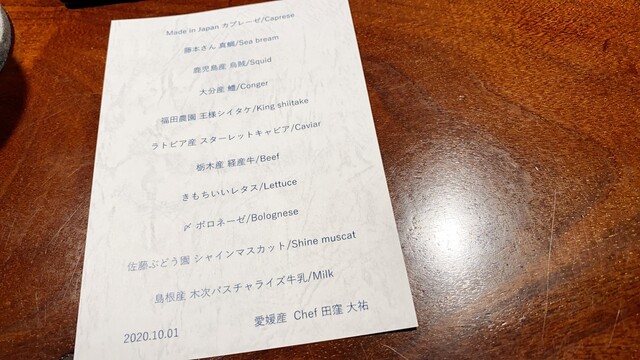 Made in Japan カプレーゼ/Caprese
藤本さん 真鯛/Sea bream
鹿児島産 烏賊/Squid
大分産 鱧/Conger
福田農園 王様シイタケ/King shiitake
ラトビア産 スターレットキャビア/Caviar
栃木産 経産牛/Beef
きもちいいレタス/Lettuce
〆 ボロネーゼ/Bolognese
佐藤ぶどう園 シャインマスカット/Shine muscat
島根産 木次パスチャライズ牛乳/Milk
愛媛産 Chef 田窪 大祐
2020.10.01